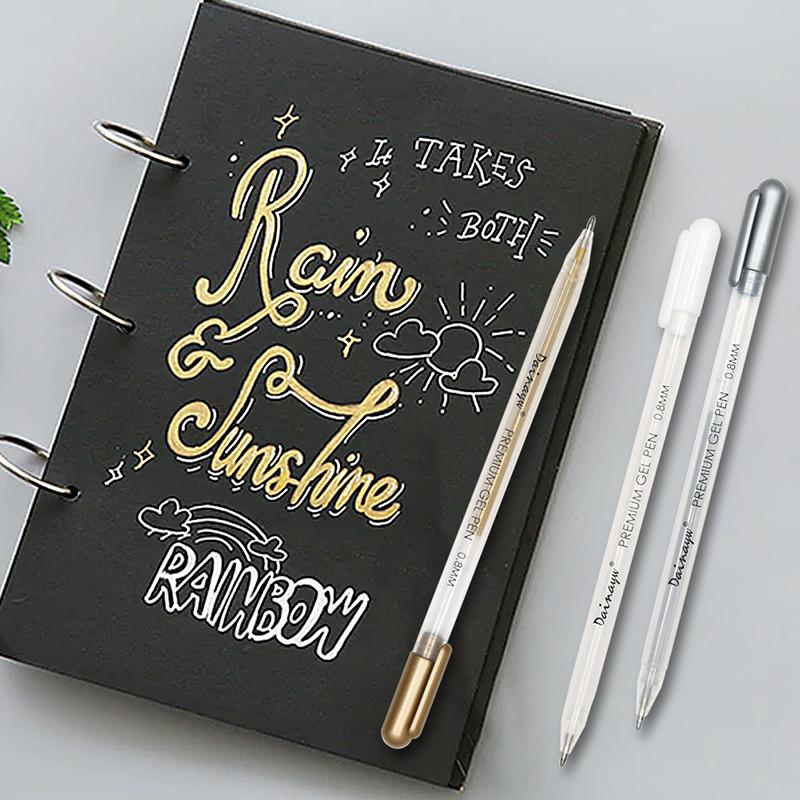 It TAKES
BOTH
Rain
&
Sunshine
RAINBOW
Dainayw® PREMIUM GEL PEN 0.8MM
Dainayw® PREMIUM GEL PEN 0.8MM
Dainayw® PREMIUM GEL PEN 0.8MM